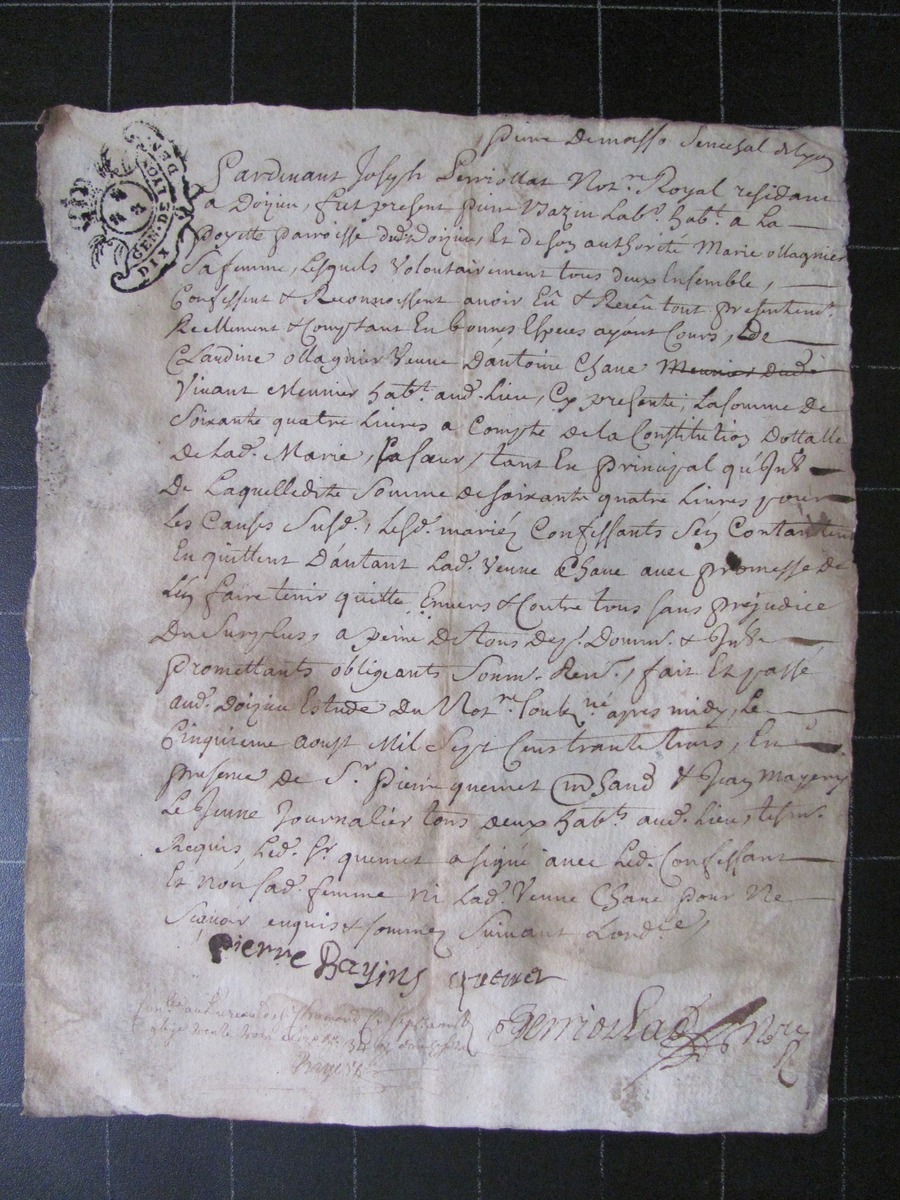 GEN. DE LYON
DIX DEN.
pierre Demasso Senechal de lyon
Pardevant Joseph Perriollat Notre. Royal residant
a Doizieu, fut present pierre Bazin Labr. habt. a La
poyette parroisse dudt Doizieu, Et de son authorité Marie ollagnier
Sa femme, Lesquels Volontairement tous deux Ensemble,
Confessent & Reconnoissent avoir Eû & Receû tout presentemt.
Reellement & Comptant En bonnes Especes ayant Cours, De
Claudine ollagnier Veuve D'antoine Chave Meunier dudt
Vivant Meunier habt. aud. Lieu, Cy presente, La somme de
Soixante quatre Livres a Compte de la Constitution Dottalle
de Lad. Marie, sa soeur, tant En principal qu'Intt
De Laquelledite Somme de soixante quatre Livres pour
Les Causes Susd., Lesd. mariéz Confessants S'en Contantent
En quittent D'autant Lad. Veuve Chave avec promesse de
L'en faire tenir quitte Envers & Contre tous sans prejudice
Du Surplus, a peine De tous desp. Domm. & Intt
promettants obligeants Soum. Ren., fait Et passé
aud. Doizieu Estude Du Notre. soubzné apres midy, Le
Cinquieme aoust Mil Sept Cens trante trois, En
presence de Sr. pierre quemet md hand & Jean Mayery
Le Jeune Journalier tous deux habts aud. Lieu, tesm.
Requis, Led. Sr. quemet a signé avec Led. Confessant
Et non Lad. femme ni Lad. Veuve Chave pour Ne
Sçavoir enquis & sommez Suivant Lordce,
pierre Bazin quemet
Perriollad Nore
R